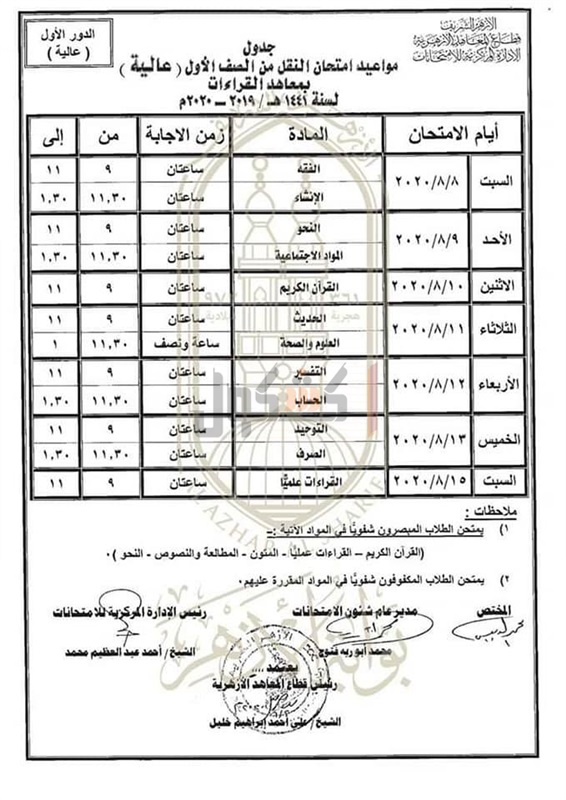 الأزهر الشريف
قطاع المعاهد الأزهرية
الإدارة المركزية للامتحانات
الدور الأول
( عالية )
جدول
مواعيد امتحان النقل من الصف الأول ( عالية )
بمعاهد القراءات
لسنة ١٤٤١ هـ / ٢٠١٩ – ٢٠٢٠م
أيام الامتحان المادة زمن الاجابة من إلى
السبت ٢٠٢٠/٨/٨ الفقه ساعتان ٩ ١١
الإنشاء ساعتان ١١,٣٠ ١,٣٠
الأحد ٢٠٢٠/٨/٩ النحو ساعتان ٩ ١١
المواد الاجتماعية ساعتان ١١,٣٠ ١,٣٠
الاثنين ٢٠٢٠/٨/١٠ القرآن الكريم ساعتان ٩ ١١
الثلاثاء ٢٠٢٠/٨/١١ الحديث ساعتان ٩ ١١
العلوم والصحة ساعة ونصف ١١,٣٠ ١
الأربعاء ٢٠٢٠/٨/١٢ التفسير ساعتان ٩ ١١
الحساب ساعتان ١١,٣٠ ١,٣٠
الخميس ٢٠٢٠/٨/١٣ التوحيد ساعتان ٩ ١١
الصرف ساعتان ١١,٣٠ ١,٣٠
السبت ٢٠٢٠/٨/١٥ القراءات علميًا ساعتان ٩ ١١
ملاحظات :
١) يمتحن الطلاب المبصرون شفويًا في المواد الآتية :ـ
(القرآن الكريم – القراءات عمليًا - المتون - المطالعة والنصوص - النحو ) ٠
٢) يمتحن الطلاب المكفوفون شفويًا في المواد المقررة عليهم٠
المختص مدير عام شئون الامتحانات رئيس الإدارة المركزية للامتحانات
محمد أبو ريه قنوح الشيخ / أحمد عبد العظيم محمد
يعتمد ،،،،
رئيس قطاع المعاهد الأزهرية
الشيخ / على أحمد إبراهيم خليل
بوابة الأزهر
AL AZHAR AL SHARIF